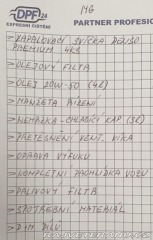 DPF24
EXPRESNÍ ČIŠTĚNÍ
146
PARTNER PROFESIO
- ZAPALOVACÍ SVÍČKA DENSO
PREMIUM 4KS
- OLEJOVÝ FILTR
- OLEJ 20W-50 (4L)
- MANŽETA ŘÍZENÍ
- NEMRZKA - CHLADÍCÍ KAP. (3L)
- PŘETĚSNĚNÍ VENT. VÍKA
- OPRAVA VÝFUKU
- KOMPLETNÍ PROHLÍDKA VOZU
- PALIVOVÝ FILTR
- SPOTŘEBNÍ MATERIÁL